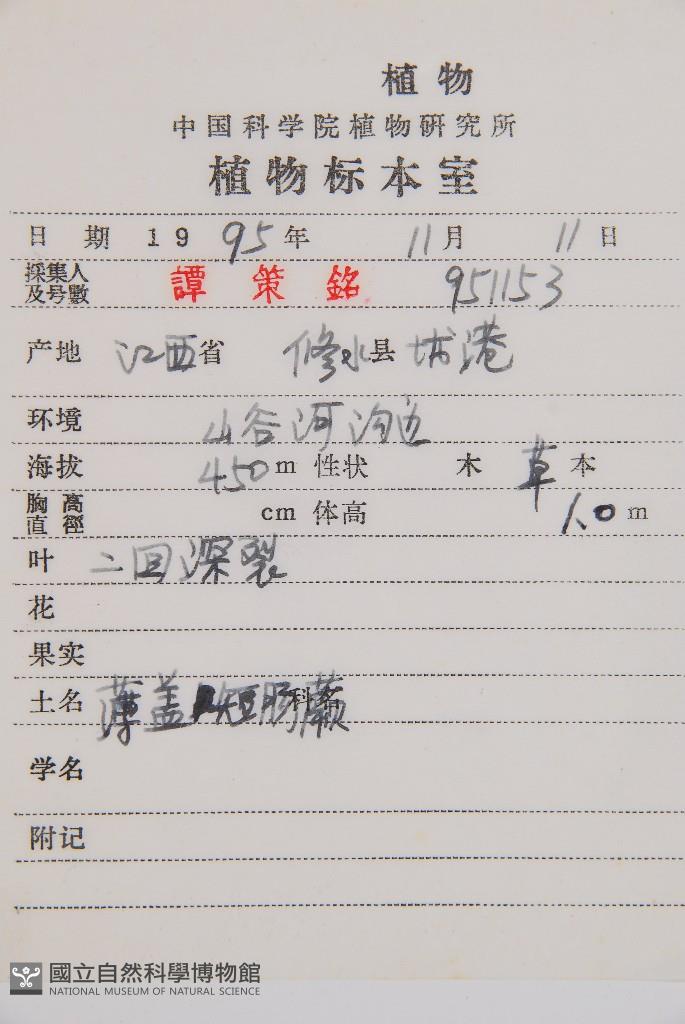 植物
中国科学院植物研究所
植物标本室
日期 1995年 11月 11日
採集人及号數 譚策銘 951153
产地 江西省 修水县 城港
环境 山谷河沟边
海拔 450m 性状 木 草本
胸高直徑 cm 体高 1.0m
叶 二回深裂
花
果实
土名 薄盖短肠蕨 科名
学名
附记
國立自然科學博物館
NATIONAL MUSEUM OF NATURAL SCIENCE